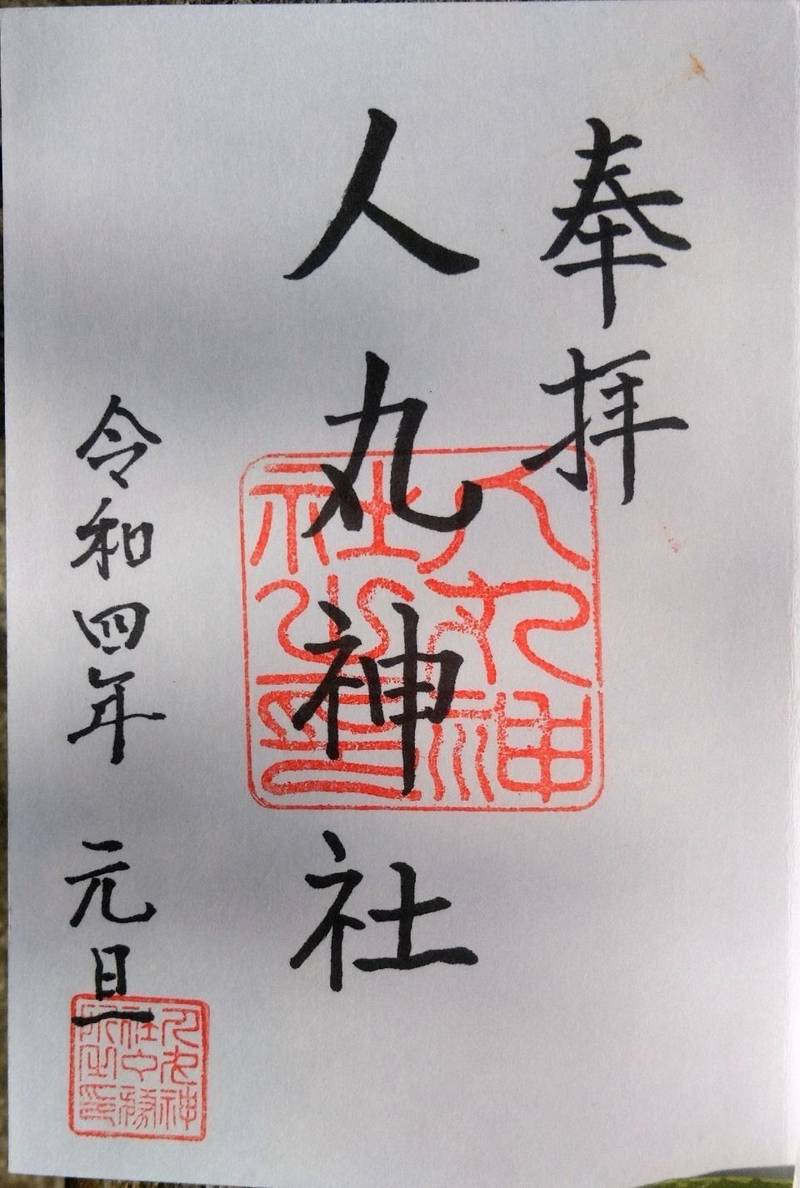 奉拝
人丸神社
令和四年 元旦
人丸神社之印